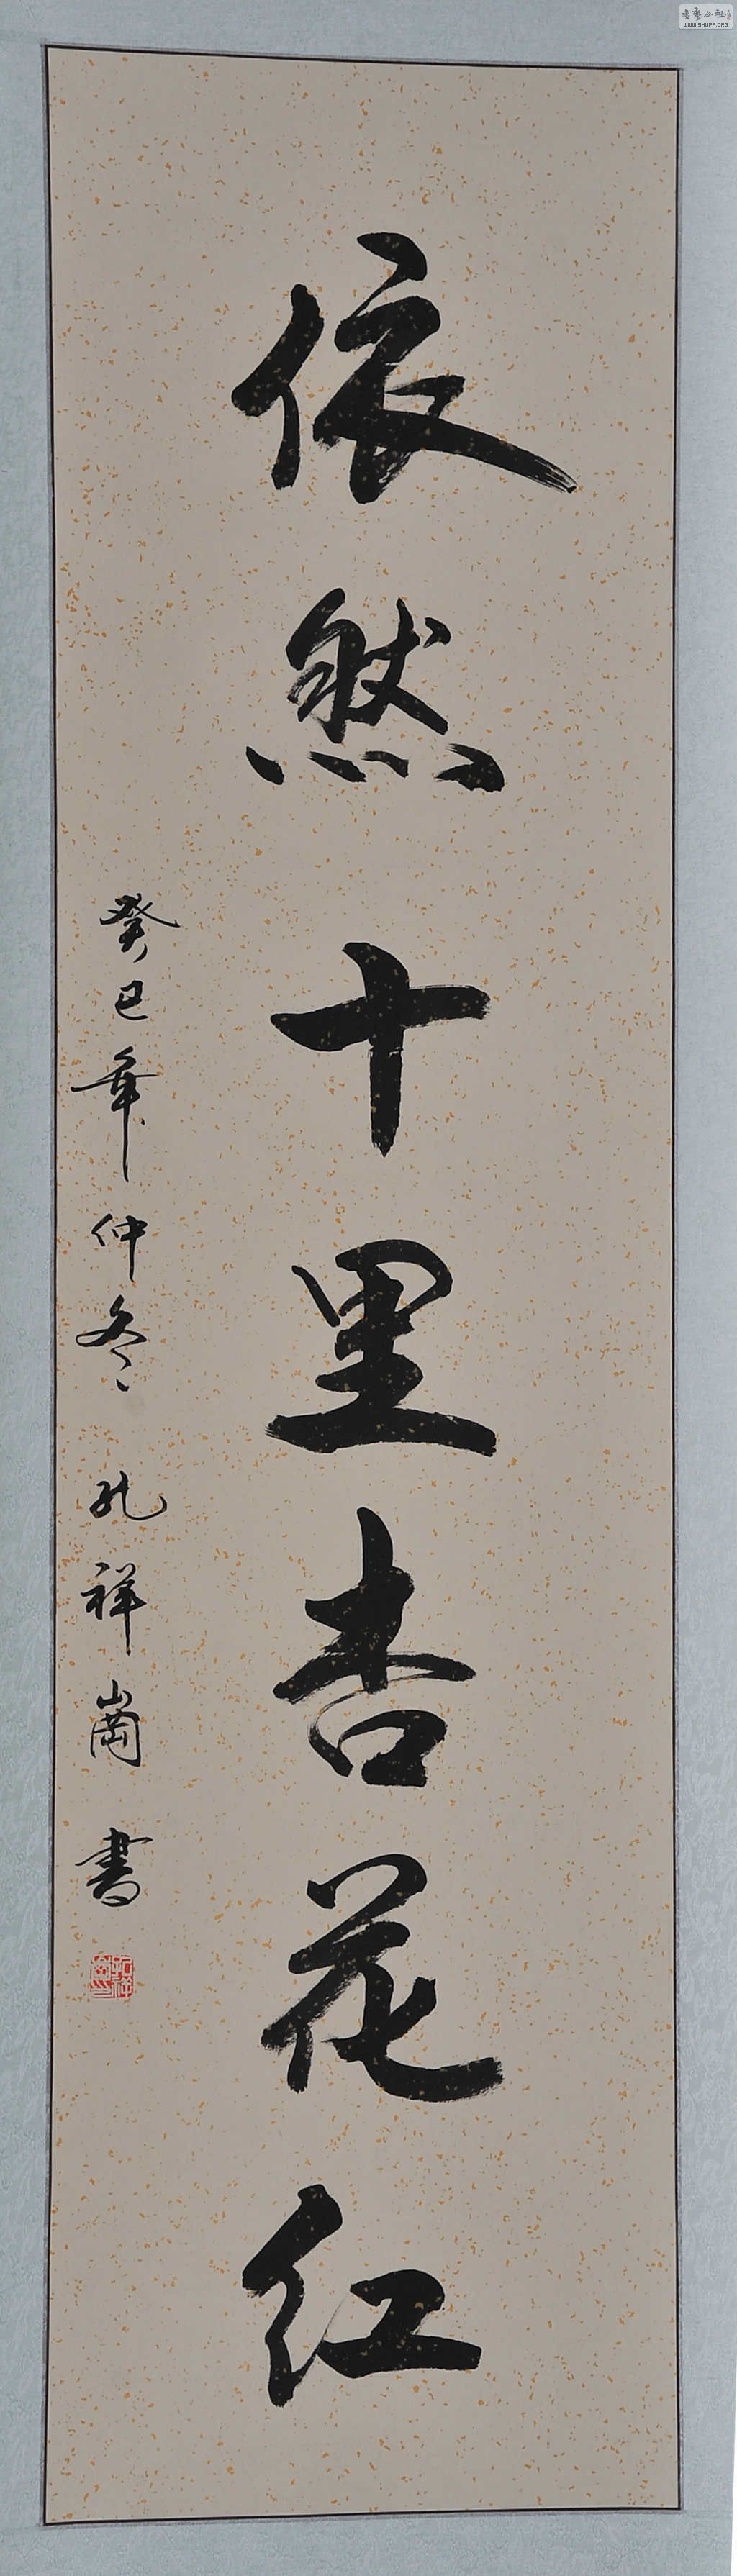 依然十里杏花红
癸巳年仲冬孔祥崗書
WWW.SHUFA.ORG